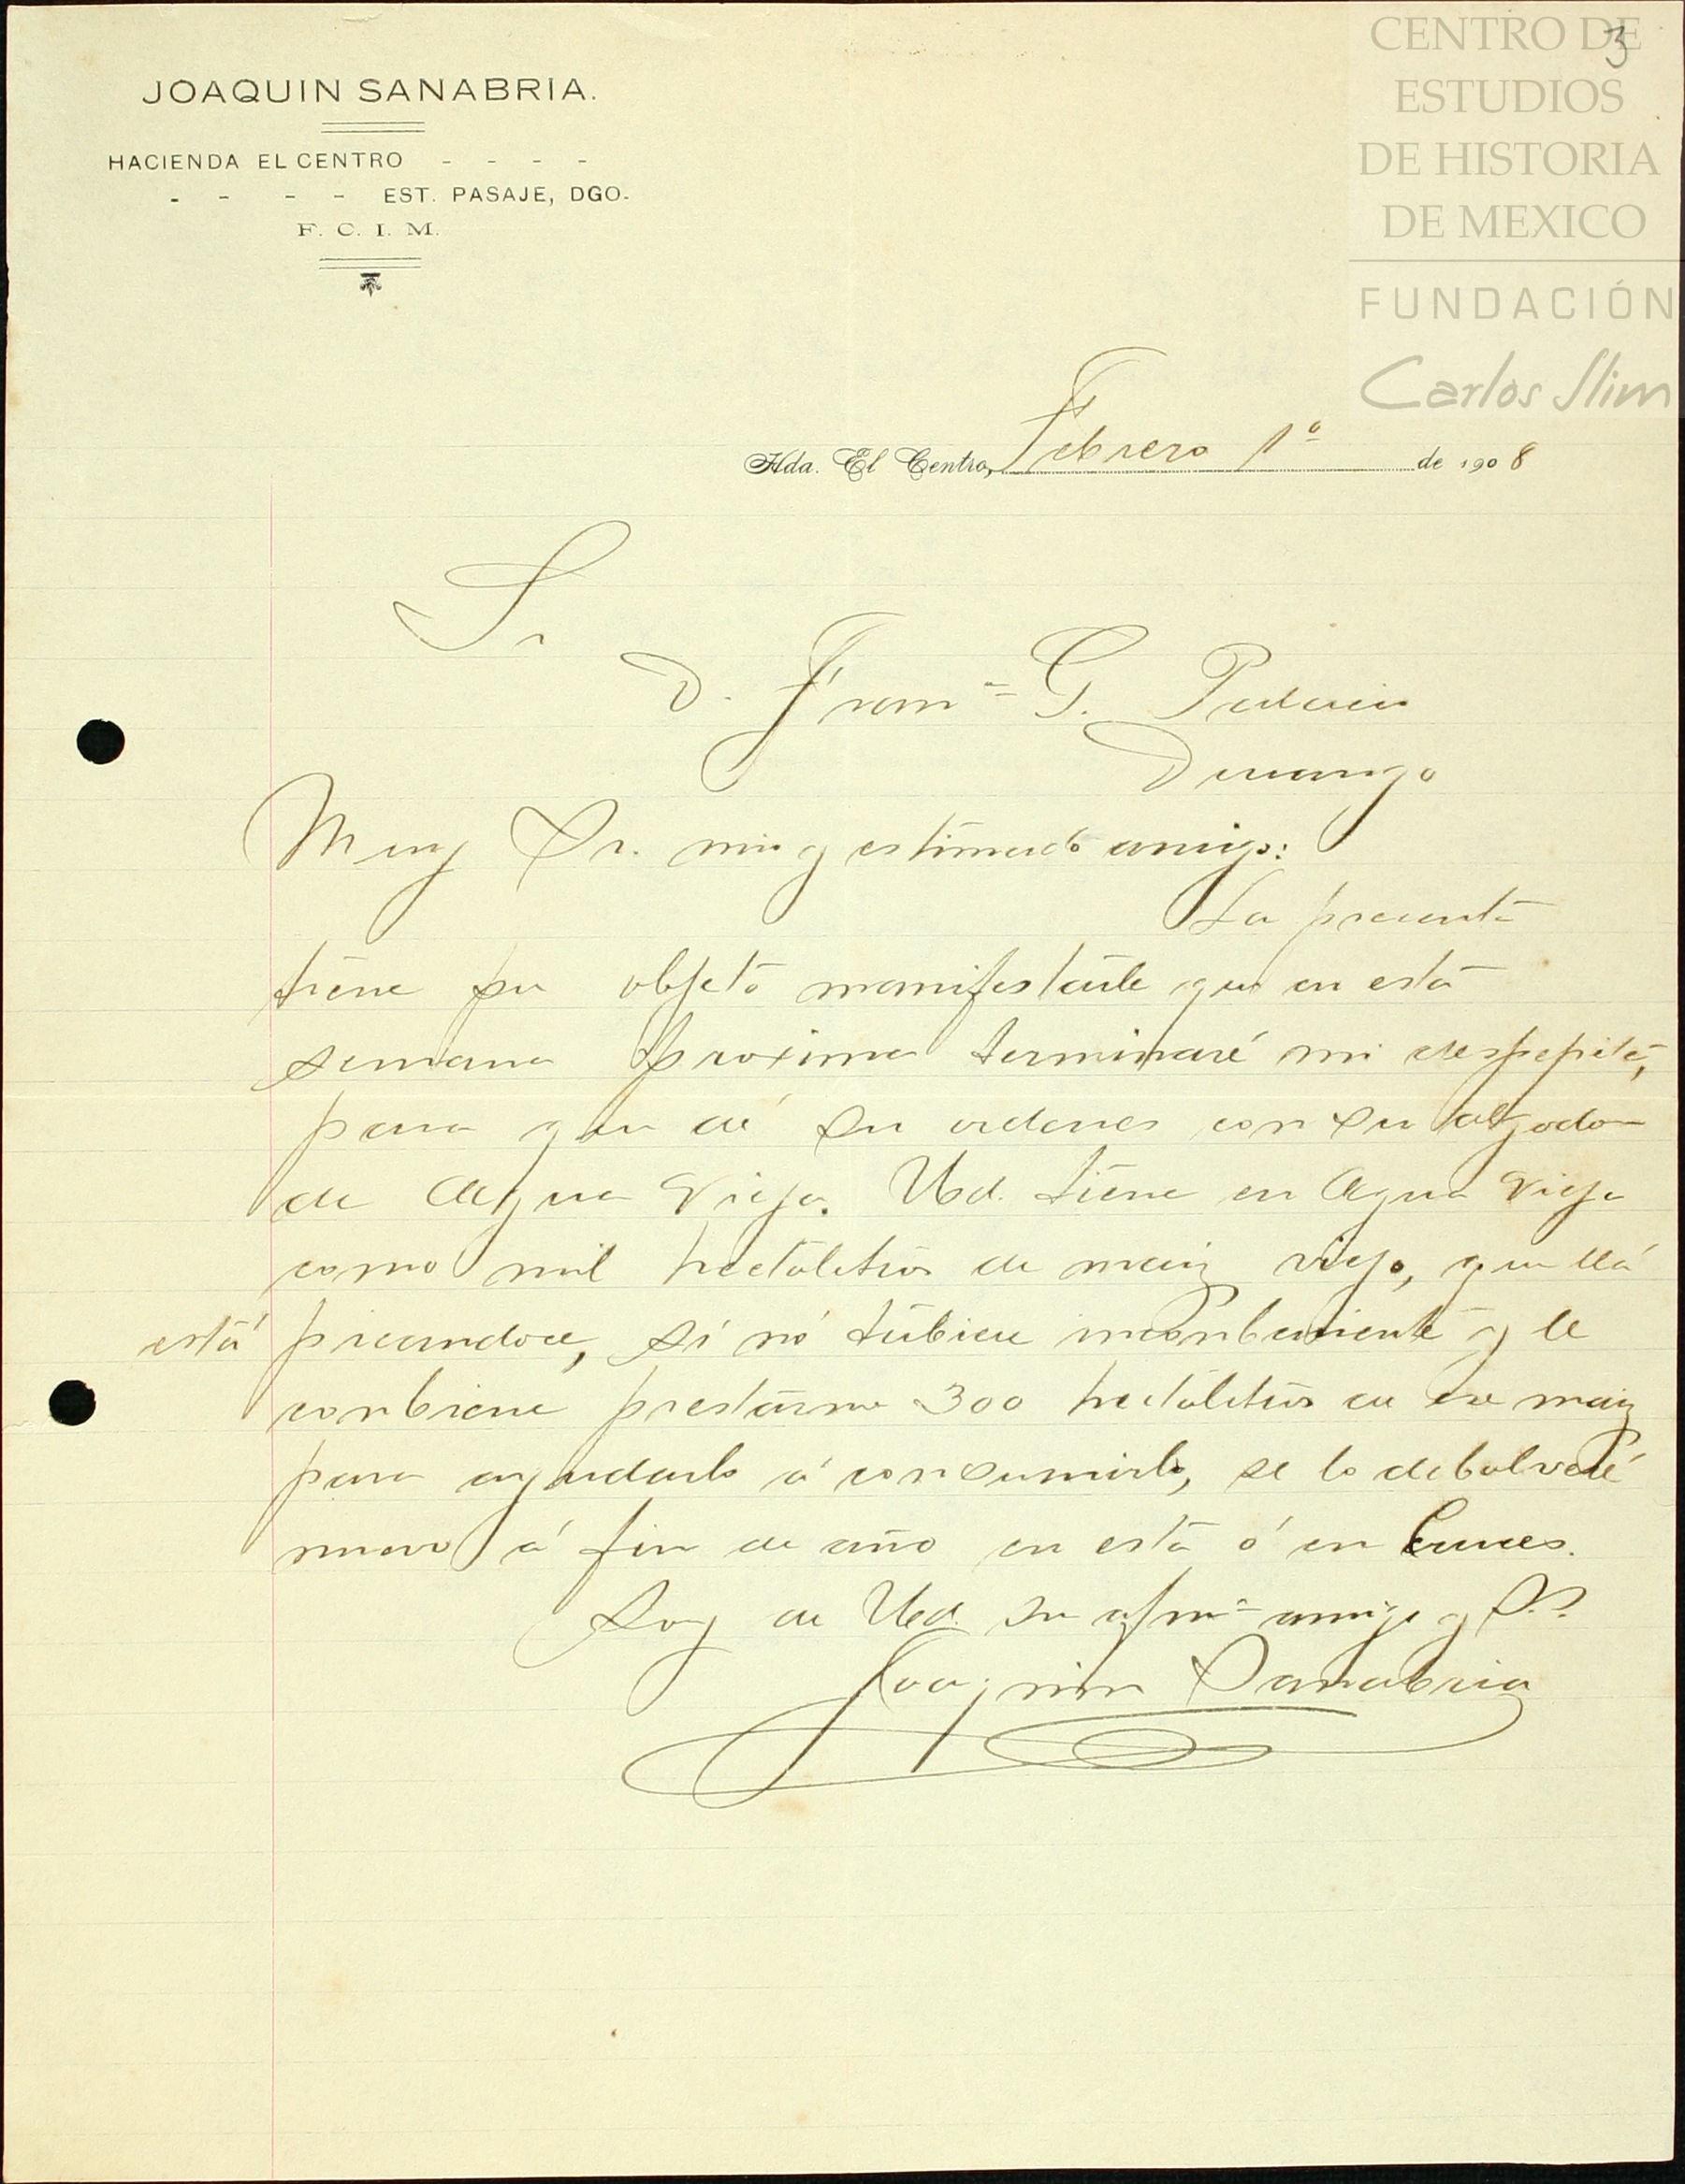 3
CENTRO DE
ESTUDIOS
DE HISTORIA
DE MEXICO
FUNDACIÓN
Carlos Slim
JOAQUIN SANABRIA.
HACIENDA EL CENTRO - - - -
- - - - EST. PASAJE, DGO.
F. C. I. M.
Hda. El Centro, Febrero 1º de 1908
Sr
D. Franco G. Palacio
Durango
Muy Sr. mio y estimado amigo:
La presente
tiene por objeto manifestarle que en esta
semana proxima terminaré mi despepite,
para que dé sus ordenes con su algodon
de Agua Vieja. Ud. tiene en Agua Vieja
como mil hectolitros de maiz viejo, que llá
está picandose, si nó tubiere inconbeniente y le
conbiene prestarme 300 hectolitros de ese maiz
para ayudarlo á consumirlo, se lo debolveré
nuevo á fin de año en esta ó en Cruces.
Soy de Ud. su afmo amigo y S.S.
Joaquin Sanabria